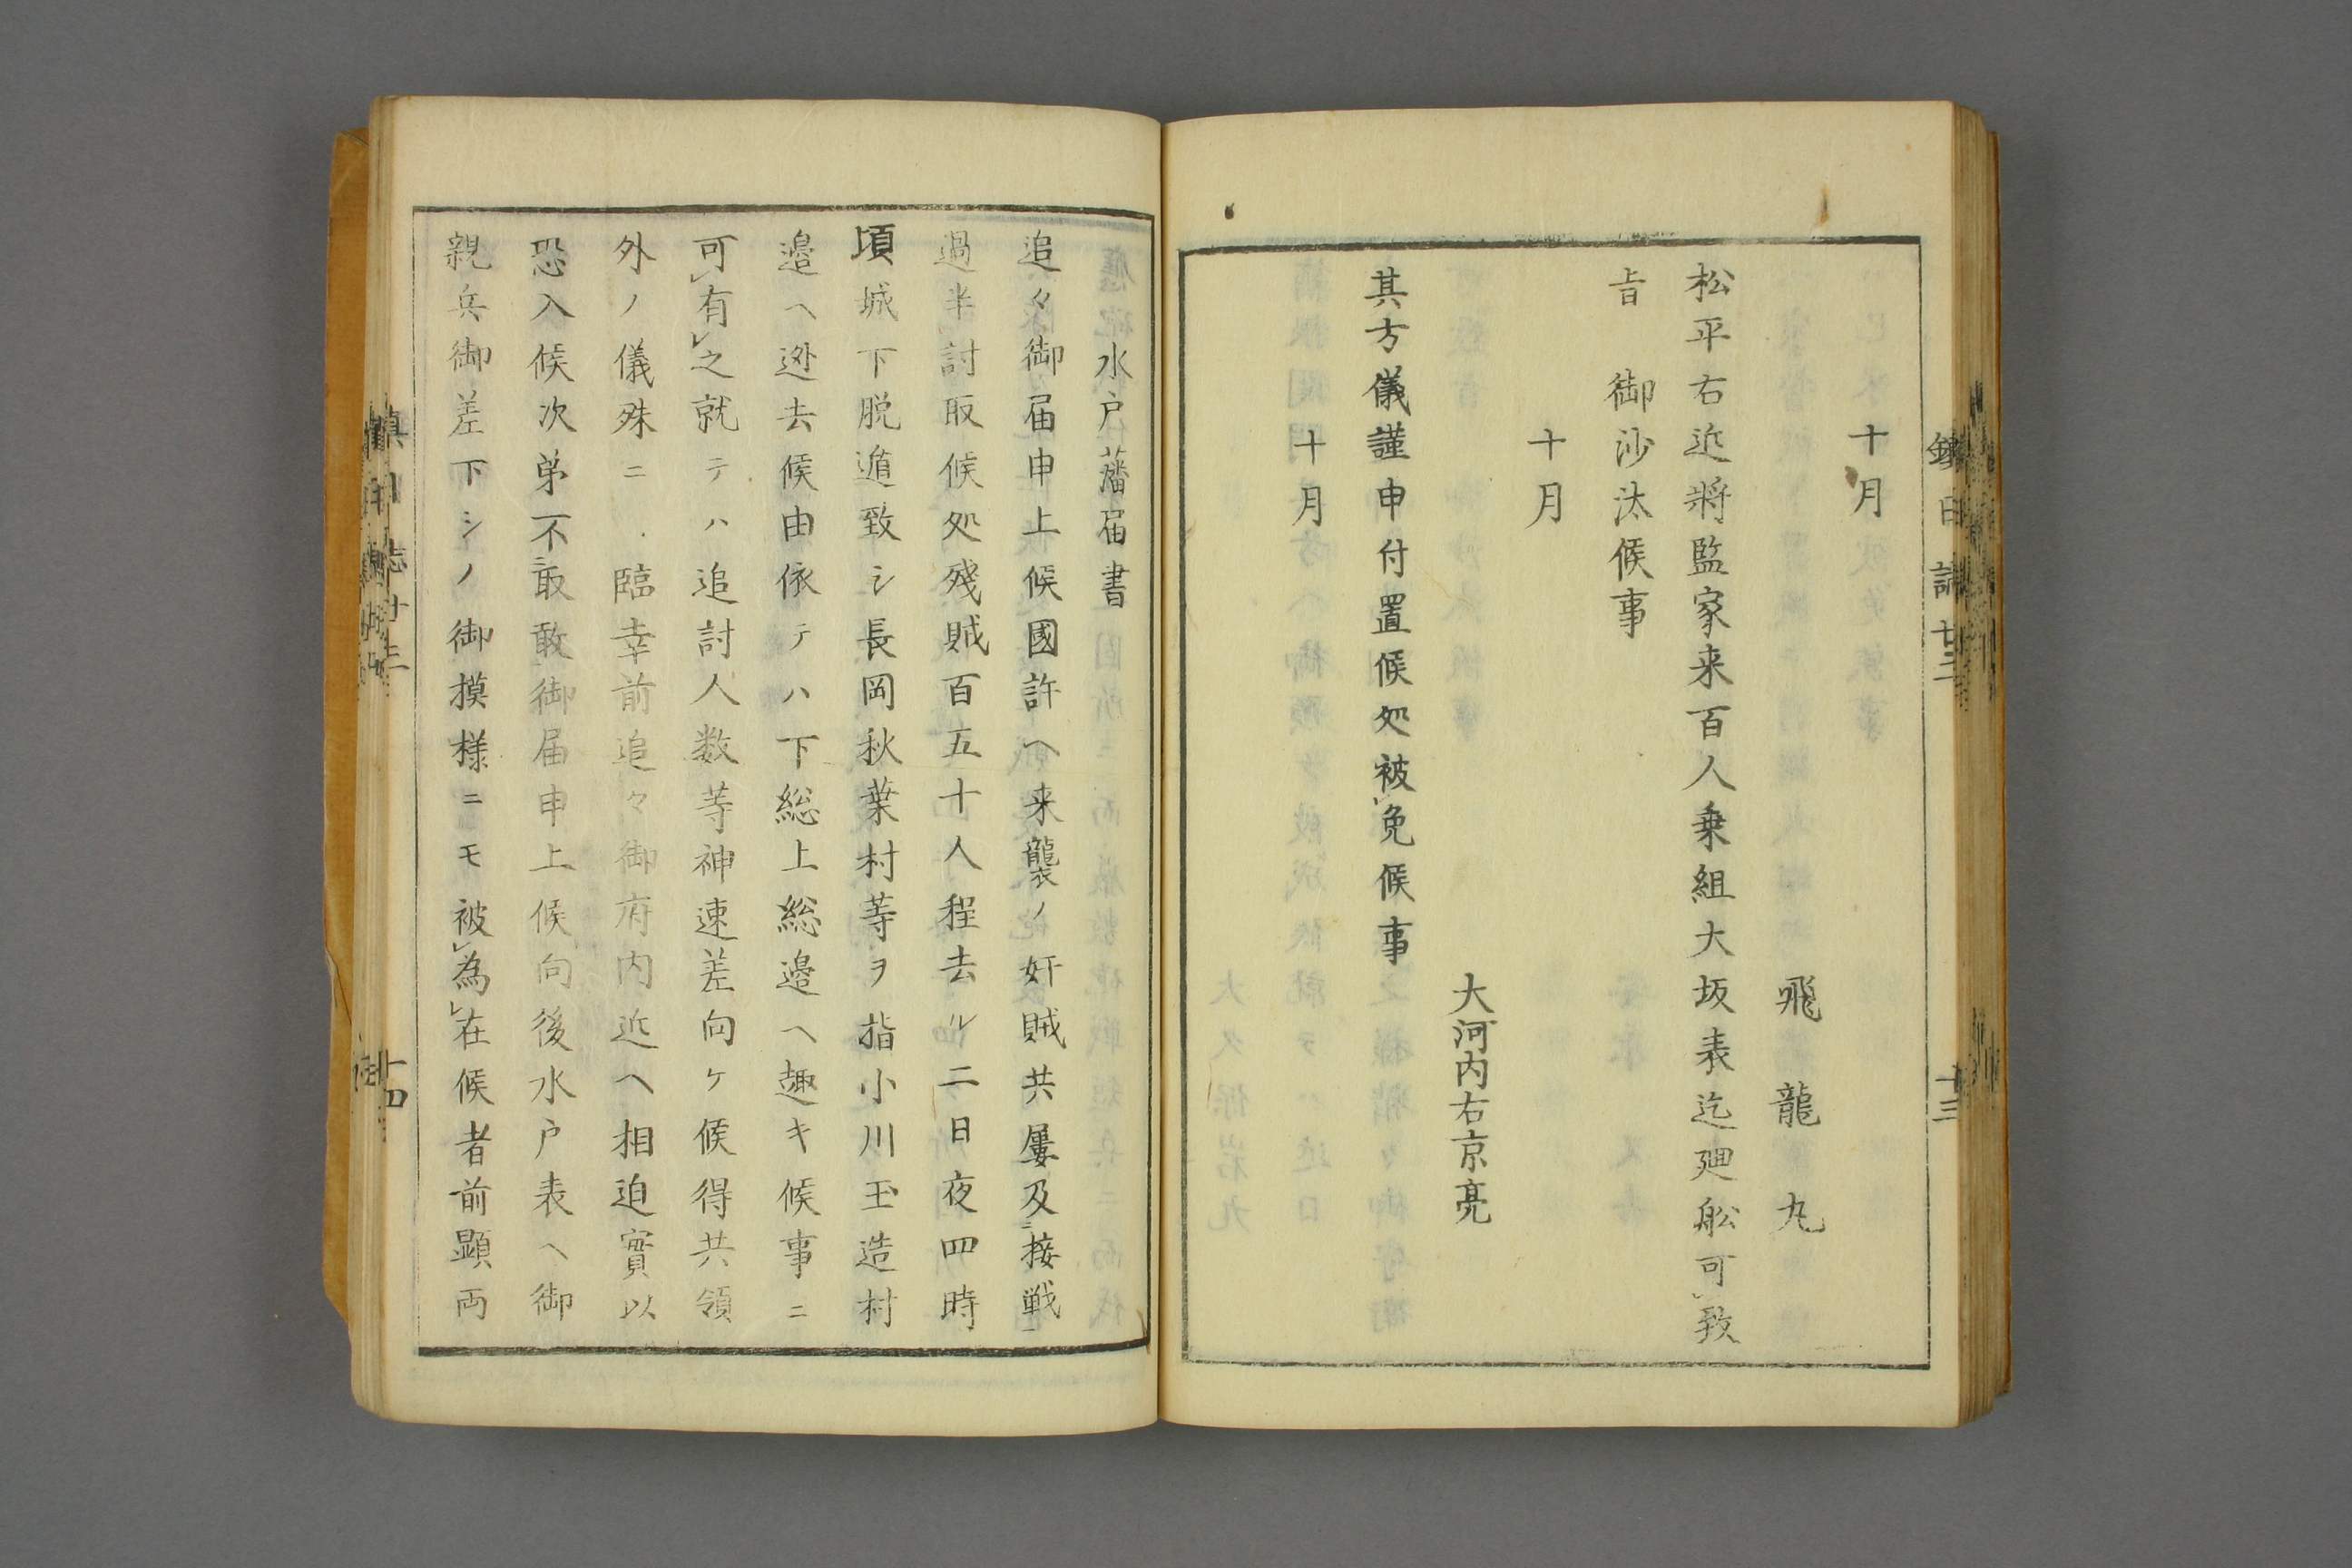 十月
飛龍丸
松平右近將監家来百人乗組大坂表迄廻舩可レ致
旨　御沙汰候事
十月
大河内右京亮
其方儀謹申付置候処被レ免候事
十月
水戸藩届書
追々御届申上候國許ヘ来襲ノ奸賊共屢及二接戦一
過半討取候処殘賊百五十人程去ル二日夜四時
頃城下脱遁致シ長岡秋葉村等ヲ指小川玉造村
邉ヘ迯去候由依テハ下総上総邉ヘ趣キ候事ニ
可レ有レ之就テハ追討人数等神速差向ケ候得共領
外ノ儀殊ニ　臨幸前追々御府内近ヘ相迫實以
恐入候次弟不二取敢一御届申上候向後水戸表ヘ御
親兵御差下シノ御摸様ニモ被レ為レ在候者前顕両
鎮日誌廿三
十三
十四